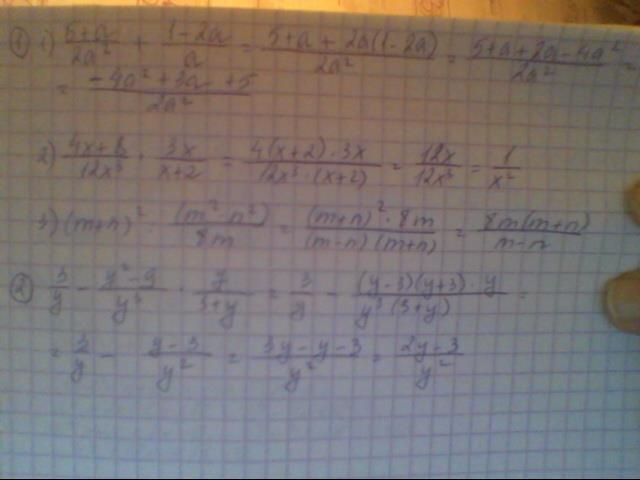 ① 1) (5+a)/(2a²) + (1-2a)/a = (5+a+2a(1-2a))/(2a²) = (5+a+2a-4a²)/(2a²) =
= (-4a²+3a+5)/(2a²)
2) (4x+8)/(12x³) · 3x/(x+2) = (4(x+2)·3x)/(12x³·(x+2)) = 12x/(12x³) = 1/x²
3) (m+n)² · (m²-n²)/(8m) = ((m+n)²·8m)/((m-n)(m+n)) = (8m(m+n))/(m-n)
② 3/y - (y²-9)/y³ · y/(3+y) = 3/y - ((y-3)(y+3)·y)/(y³(3+y)) =
= 3/y - (y-3)/y² = (3y-y-3)/y² = (2y-3)/y²